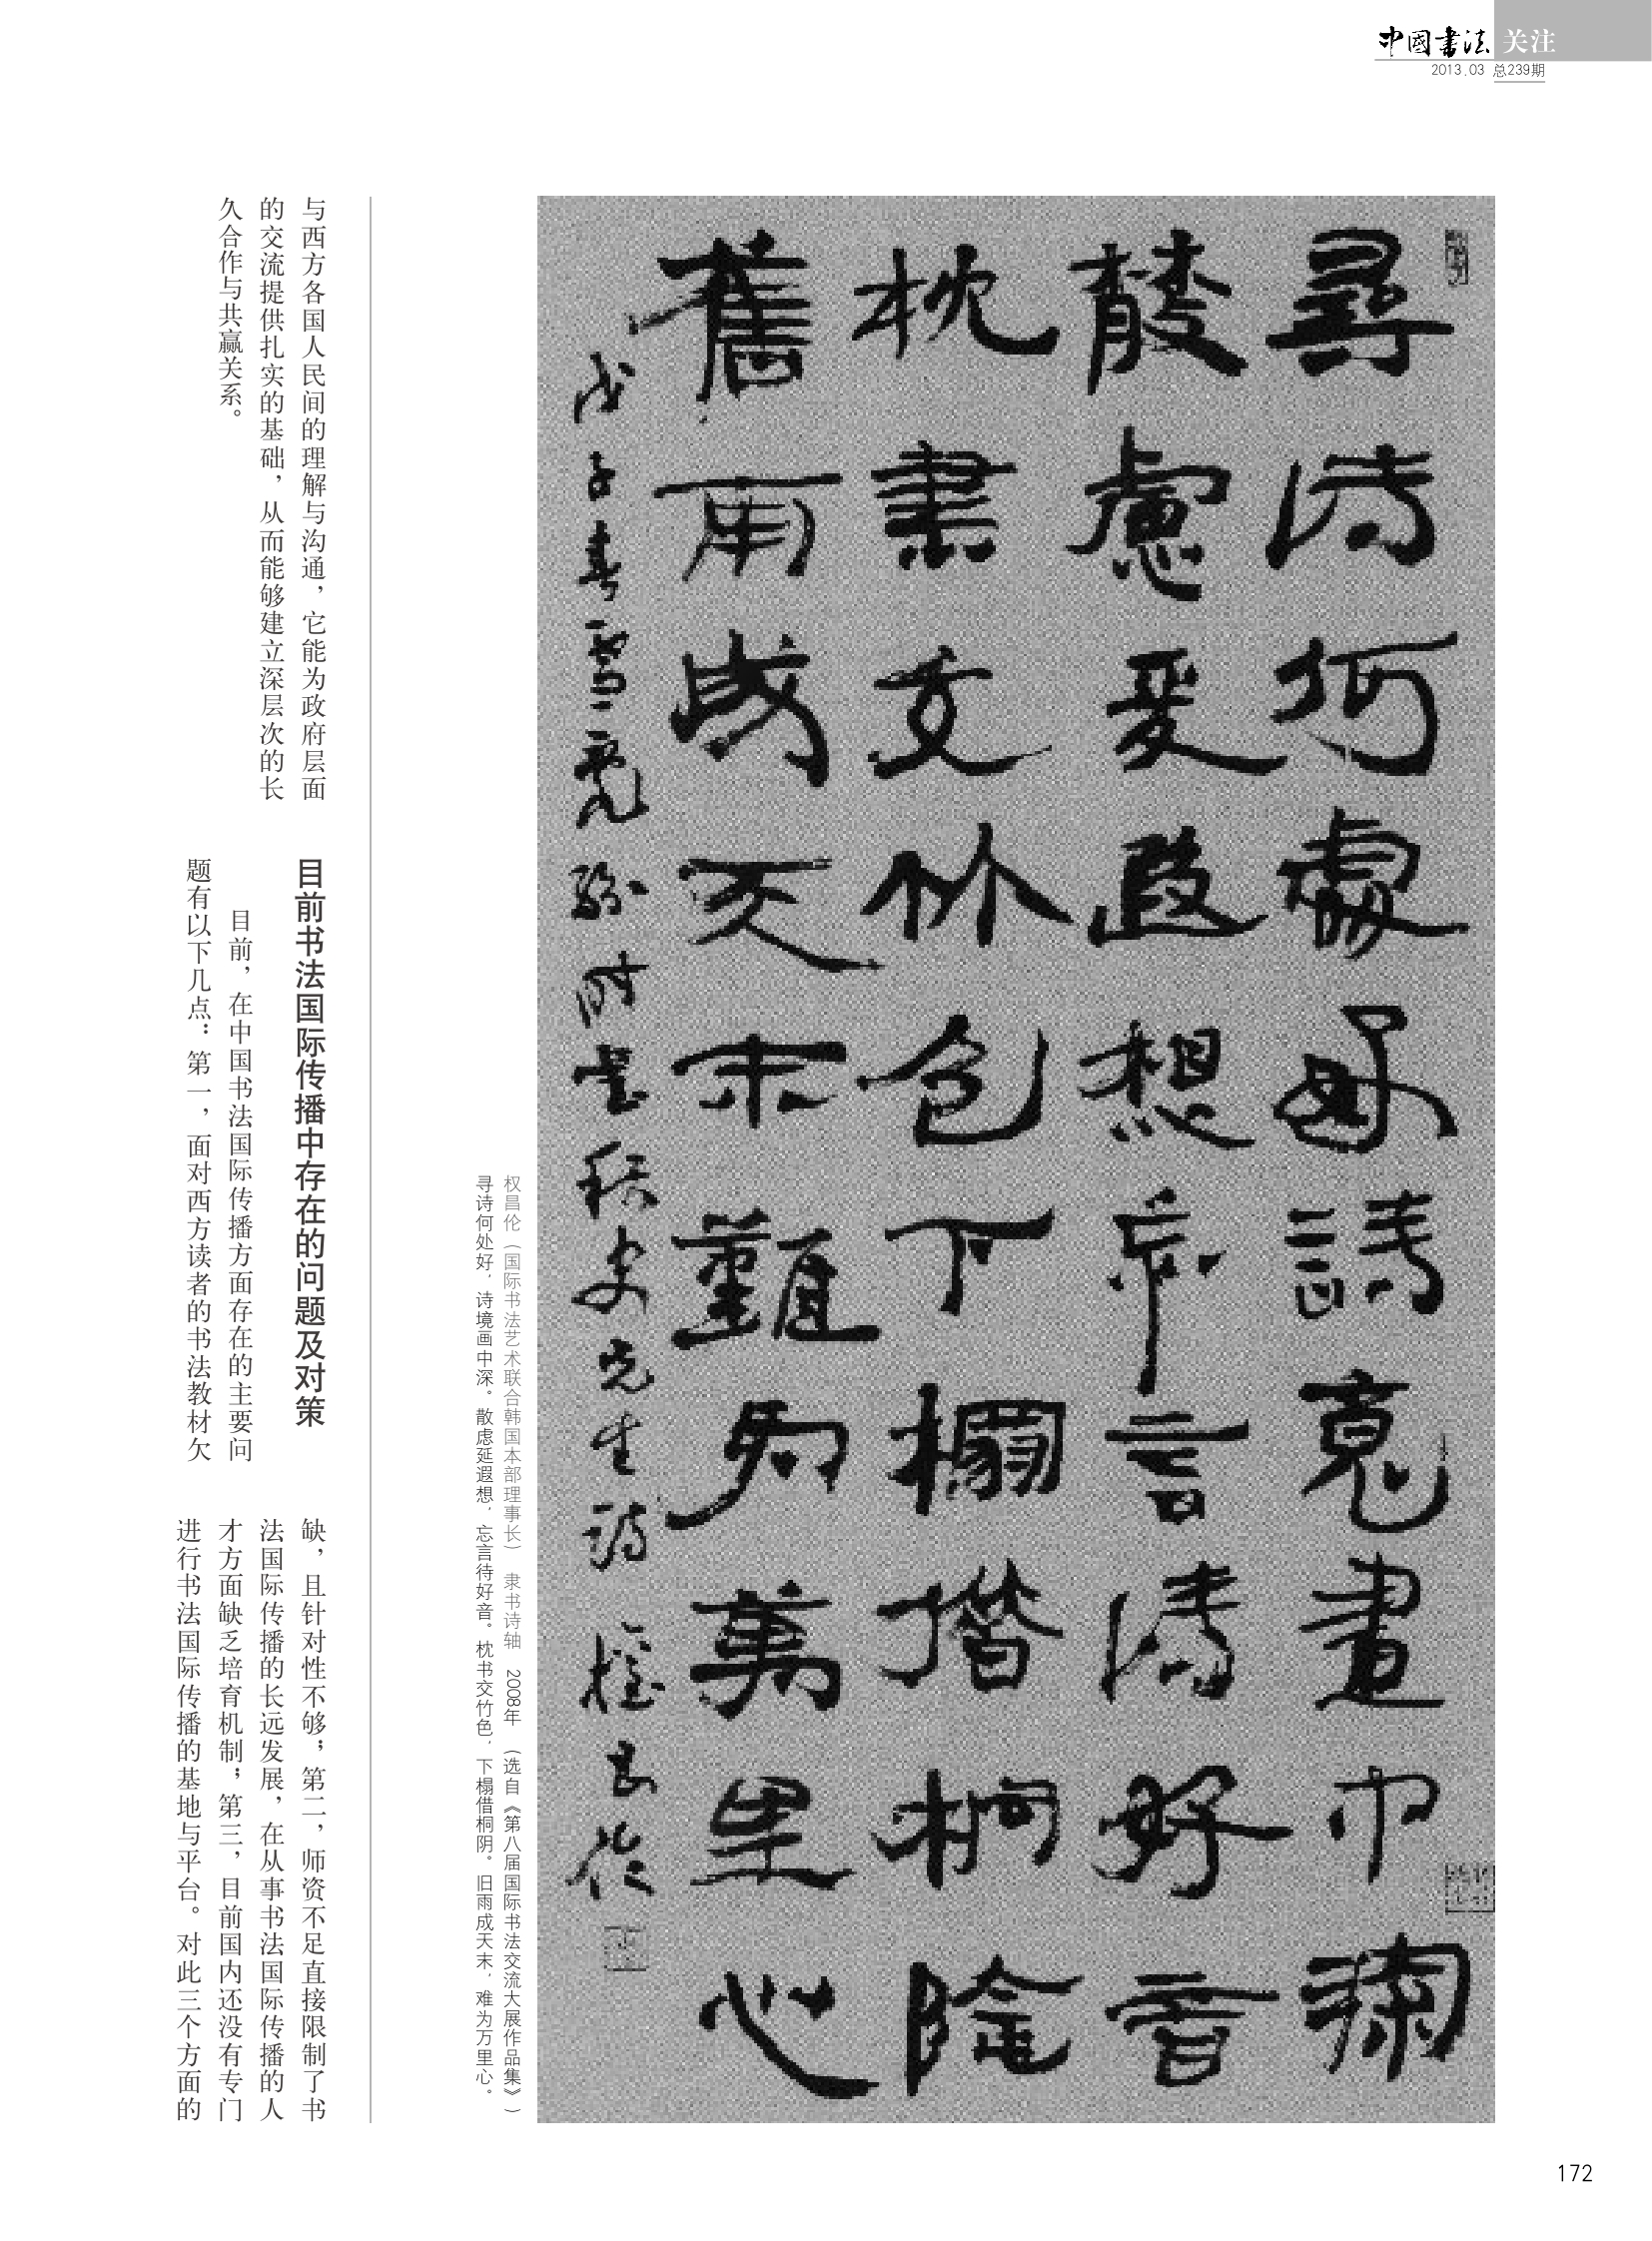 中國书法 关注
2013.03 总239期
尋詩何處好詩境畫中深
散慮延遐想忘言待好音
枕書交竹色下榻借桐陰
舊雨成天末難為萬里心
戊子春 時書 先生詩 權昌倫
权昌伦（国际书法艺术联合韩国本部理事长） 隶书诗轴 2008年 （选自《第八届国际书法交流大展作品集》）
寻诗何处好，诗境画中深。散虑延遐想，忘言待好音。枕书交竹色，下榻借桐阴。旧雨成天末，难为万里心。
与西方各国人民间的理解与沟通，它能为政府层面
的交流提供扎实的基础，从而能够建立深层次的长
久合作与共赢关系。
目前书法国际传播中存在的问题及对策
目前，在中国书法国际传播方面存在的主要问
题有以下几点：第一，面对西方读者的书法教材欠
缺，且针对性不够；第二，师资不足直接限制了书
法国际传播的长远发展，在从事书法国际传播的人
才方面缺乏培育机制；第三，目前国内还没有专门
进行书法国际传播的基地与平台。对此三个方面的
172